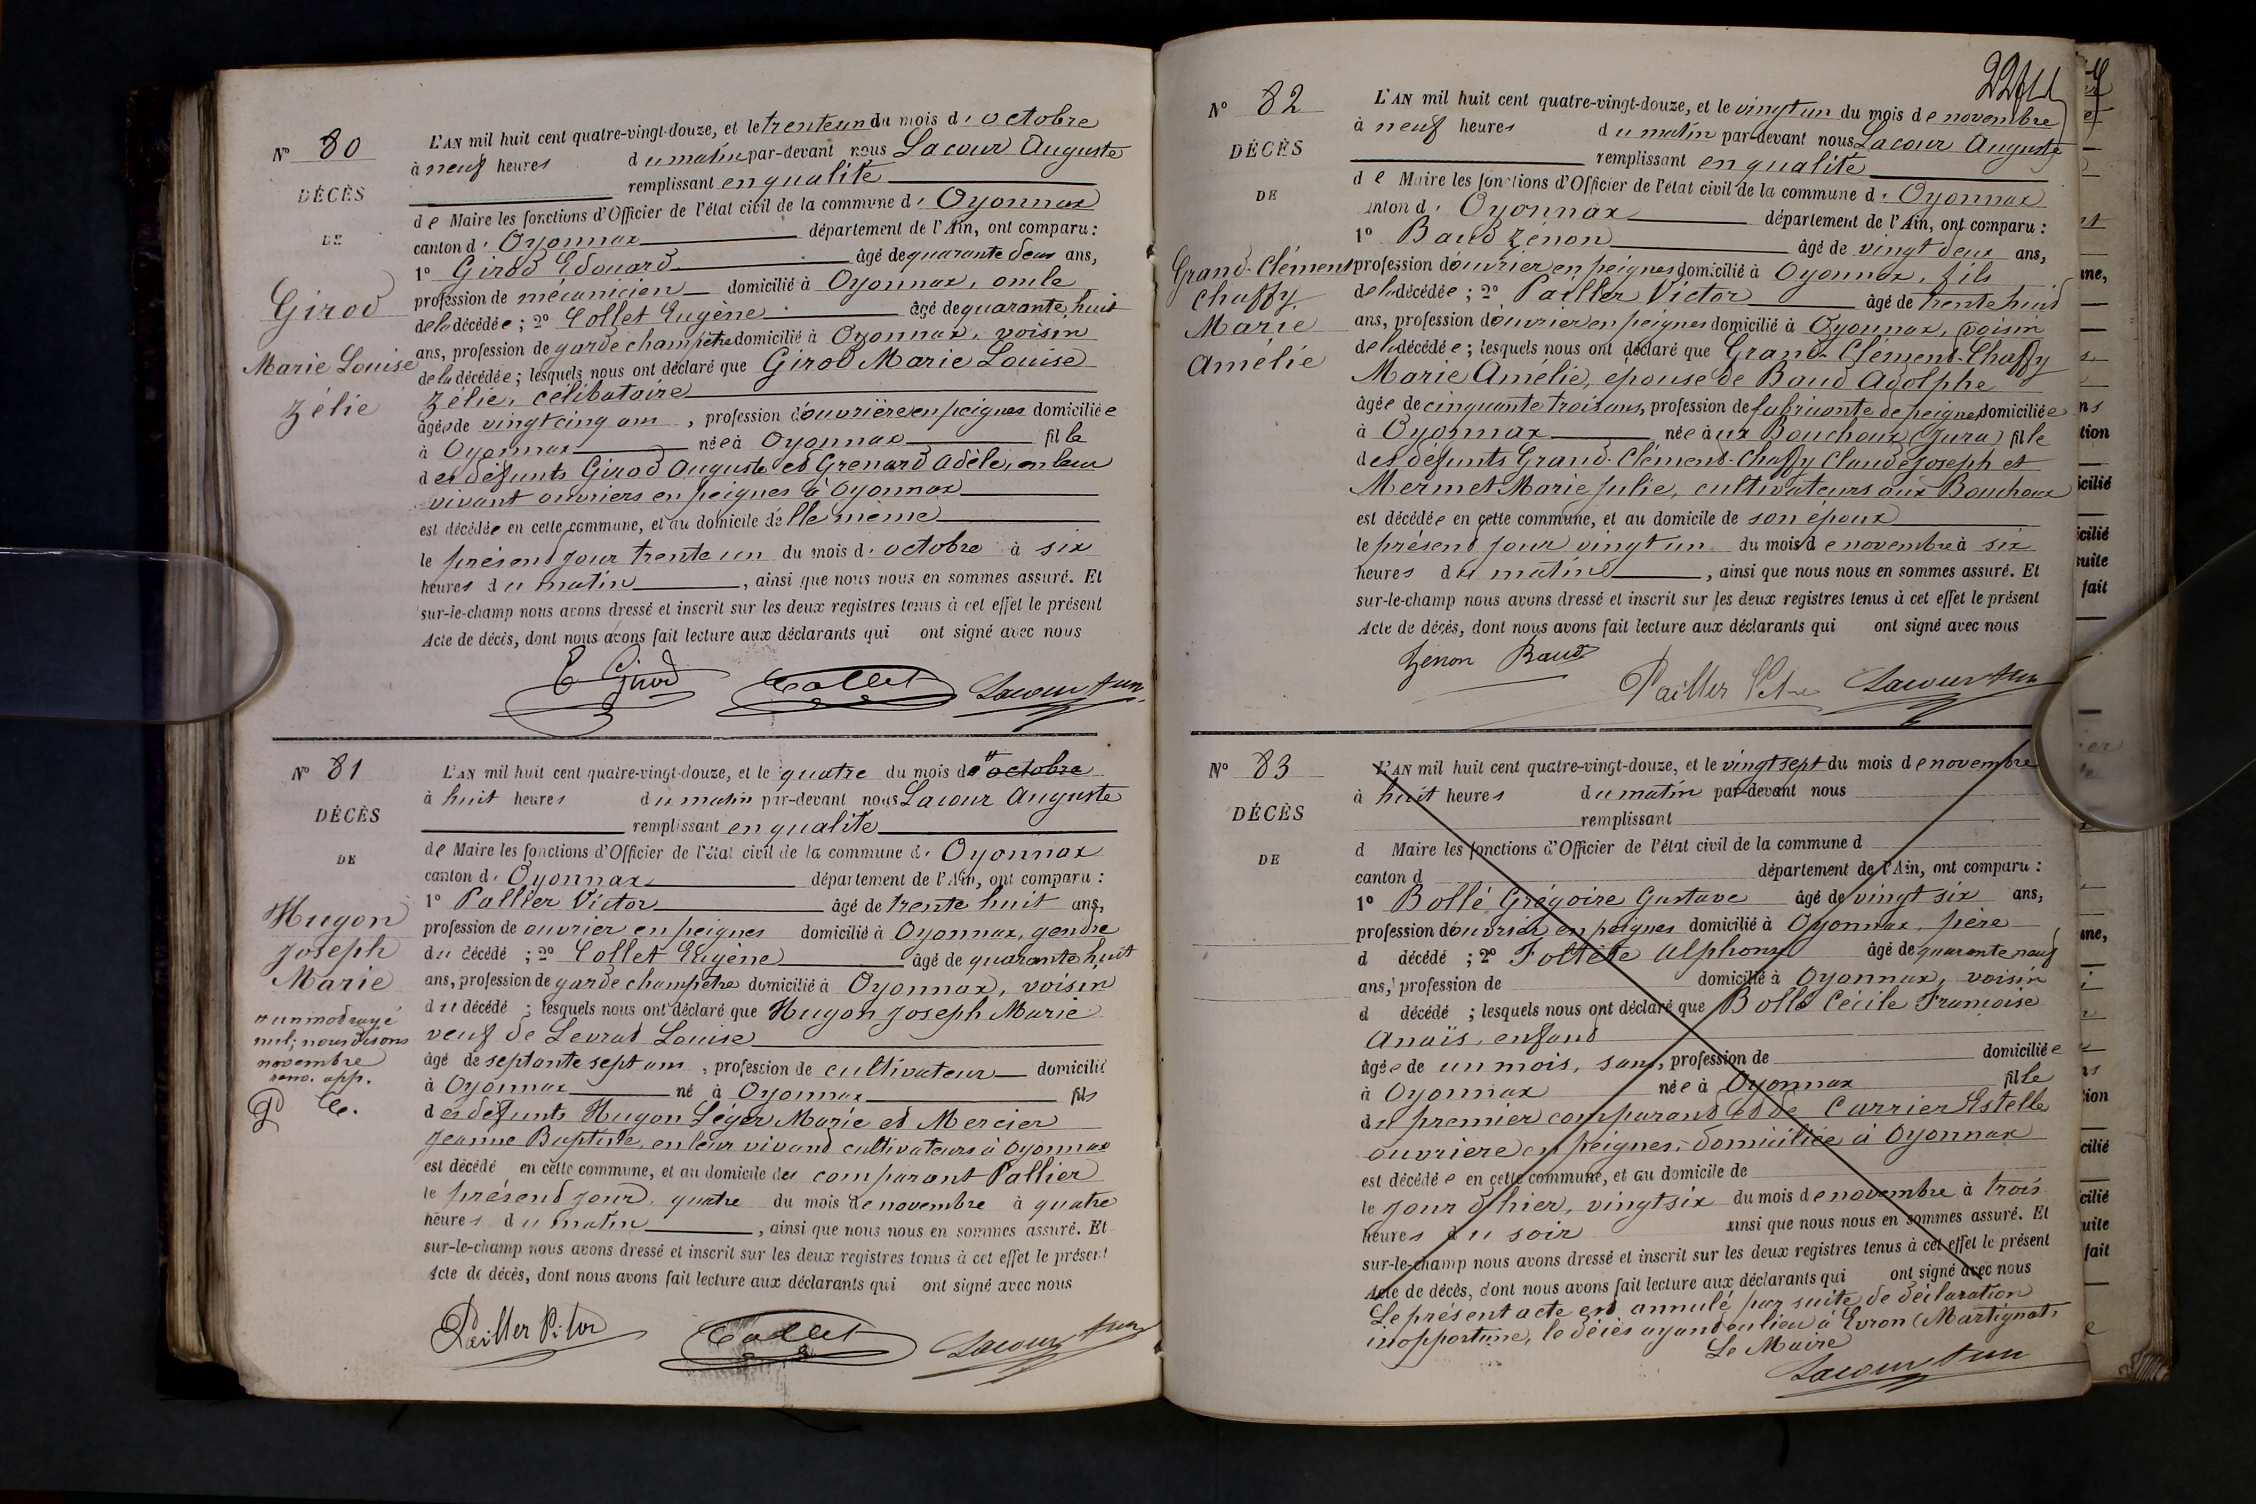 N° 80
DÉCÈS
DE
Girod
Marie Louise
Zélie
L'AN mil huit cent quatre-vingt-douze, et le trente un du mois d'octobre
à neuf heures du matin par-devant nous Lacour Auguste
remplissant en qualité
de Maire les fonctions d'Officier de l'état civil de la commune d'Oyonnax
canton d'Oyonnax département de l'Ain, ont comparu :
1° Girod Edouard âgé de quarante deux ans,
profession de mécanicien domicilié à Oyonnax, oncle
de la décédée ; 2° Collet Eugène âgé de quarante huit
ans, profession de garde champêtre domicilié à Oyonnax, voisin
de la décédée ; lesquels nous ont déclaré que Girod Marie Louise
Zélie, célibataire
âgée de vingt cinq ans, profession d'ouvrière en peignes domiciliée
à Oyonnax née à Oyonnax fille
des défunts Girod Auguste et Grenard Adèle, en leur
vivant ouvriers en peignes à Oyonnax
est décédée en cette commune, et au domicile d'elle même
le présent jour trente un du mois d'octobre à six
heures du matin, ainsi que nous nous en sommes assuré. Et
sur-le-champ nous avons dressé et inscrit sur les deux registres tenus à cet effet le présent
Acte de décès, dont nous avons fait lecture aux déclarants qui ont signé avec nous
E Girod Collet Lacour
N° 81
DÉCÈS
DE
Hugon
Joseph
Marie
" un mot rayé
nul ; nous disons
novembre
L'AN mil huit cent quatre-vingt-douze, et le quatre du mois de " octobre
à huit heures du matin par-devant nous Lacour Auguste
remplissant en qualité
de Maire les fonctions d'Officier de l'état civil de la commune d'Oyonnax
canton d'Oyonnax département de l'Ain, ont comparu :
1° Pallier Victor âgé de trente huit ans,
profession de ouvrier en peignes domicilié à Oyonnax, gendre
du décédé ; 2° Collet Eugène âgé de quarante huit
ans, profession de garde champêtre domicilié à Oyonnax, voisin
du décédé ; lesquels nous ont déclaré que Hugon Joseph Marie
veuf de Levrat Louise
âgé de septante sept ans, profession de cultivateur domicilié
à Oyonnax né à Oyonnax fils
des défunts Hugon Léger Marie et Mercier
Jeanne Baptiste, en leur vivant cultivateurs à Oyonnax
est décédé en cette commune, et au domicile du comparant Pallier
le présent jour quatre du mois de novembre à quatre
heures du matin, ainsi que nous nous en sommes assuré. Et
sur-le-champ nous avons dressé et inscrit sur les deux registres tenus à cet effet le présent
Acte de décès, dont nous avons fait lecture aux déclarants qui ont signé avec nous
Pailler Collet Lacour
N° 82
DÉCÈS
DE
Grand-Clément
Chaffy
Marie
Amélie
L'AN mil huit cent quatre-vingt-douze, et le vingt un du mois de novembre
à neuf heures du matin par-devant nous Lacour Auguste
remplissant en qualité
de Maire les fonctions d'Officier de l'état civil de la commune d'Oyonnax
canton d'Oyonnax département de l'Ain, ont comparu :
1° Baud Zénon âgé de vingt deux ans,
profession d'ouvrier en peignes domicilié à Oyonnax, fils
de la décédée ; 2° Pailler Victor âgé de trente huit
ans, profession d'ouvrier en peignes domicilié à Oyonnax, voisin
de la décédée ; lesquels nous ont déclaré que Grand-Clément-Chaffy
Marie Amélie, épouse de Baud Adolphe
âgée de cinquante trois ans, profession de fabricante de peignes domiciliée
à Oyonnax née aux Bouchoux (Jura) fille
des défunts Grand-Clément-Chaffy Claude Joseph et
Mermet Marie Julie, cultivateurs aux Bouchoux
est décédée en cette commune, et au domicile de son époux
le présent jour vingt un du mois de novembre à six
heures du matin, ainsi que nous nous en sommes assuré. Et
sur-le-champ nous avons dressé et inscrit sur les deux registres tenus à cet effet le présent
Acte de décès, dont nous avons fait lecture aux déclarants qui ont signé avec nous
Zénon Baud
Pailler Lacour
N° 83
DÉCÈS
DE
L'AN mil huit cent quatre-vingt-douze, et le vingt sept du mois de novembre
à huit heures du matin par-devant nous
remplissant
d Maire les fonctions d'Officier de l'état civil de la commune d
canton d département de l'Ain, ont comparu :
1° Bollé Grégoire Gustave âgé de vingt six ans,
profession d'ouvrier en peignes domicilié à Oyonnax, père
d décédé ; 2° Foltête Alphonse âgé de quarante neuf
ans, profession de domicilié à Oyonnax, voisin
d décédé ; lesquels nous ont déclaré que Bollé Cécile Françoise
Anaïs, enfant
âgée de un mois, sans, profession de domiciliée
à Oyonnax née à Oyonnax fille
du premier comparant et de Carrier Estelle
ouvrière en peignes, domiciliée à Oyonnax
est décédée en cette commune, et au domicile de
le jour d'hier, vingt six du mois de novembre à trois
heures du soir ainsi que nous nous en sommes assuré. Et
sur-le-champ nous avons dressé et inscrit sur les deux registres tenus à cet effet le présent
Acte de décès, dont nous avons fait lecture aux déclarants qui ont signé avec nous
Le présent acte est annulé par suite de déclaration
inopportune, le décès ayant eu lieu à Evron (Martignat)
Le Maire
Lacour